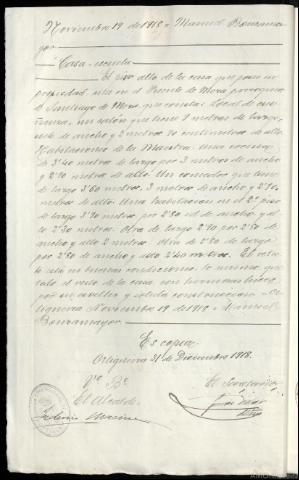 Noviembre 19 de 1918 = Manuel Bouzama
yor
Casa-escuela
El piso alto de la casa que poseo en
propiedad, sita en el Puente de Mera parroquia
de Santiago de Mera que consta: Local de en-
señanza, un salón que tiene 9 metros de largo,
de ancho y 2 metros 70 centímetros de alto.
Habitaciones de la Maestra: Una cocina
de 3'40 metros de largo por 3 metros de ancho
y 2'70 metros de alto. Un comedor que tiene
de largo 3'60 metros, 3 metros de ancho y 2'70
metros de alto. Una habitación en el 2º piso
de largo 3'70 metros, por 2'80 id de ancho, y al-
to 2'30 metros. Otra de largo 2'90 por 2'80 de
ancho y alto 2 metros. Otra de 2'80 de largo
por 2'80 de ancho y alto 2'40 metros. El
está en buenas condiciones lo mismo que
todo el resto de la casa, con
por su y sólida construcción = Or-
tigueira Noviembre 19 de 1918 = Manuel
Bouzamayor
Es copia
Ortigueira 31 de Diciembre 1918.
Vº Bº
El Alcalde
El Secretario